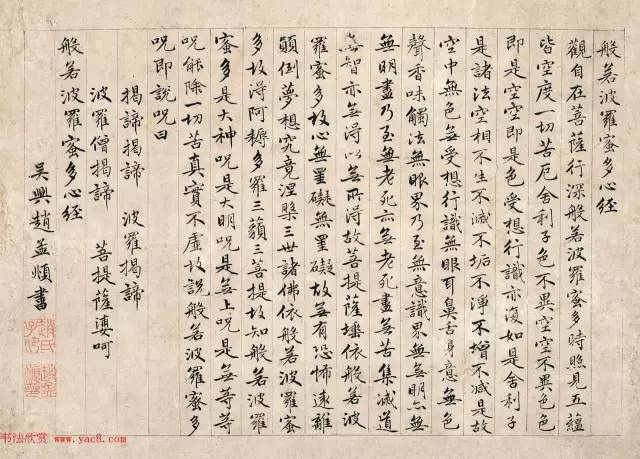 般若波羅蜜多心經
觀自在菩薩行深般若波羅蜜多時照見五蘊
皆空度一切苦厄舍利子色不異空空不異色色
即是空空即是色受想行識亦復如是舍利子
是諸法空相不生不滅不垢不淨不增不減是故
空中無色無受想行識無眼耳鼻舌身意無色
聲香味觸法無眼界乃至無意識界無無明亦無
無明盡乃至無老死亦無老死盡無苦集滅道
無智亦無得以無所得故菩提薩埵依般若波
羅蜜多故心無罣礙無罣礙故無有恐怖遠離
顛倒夢想究竟涅槃三世諸佛依般若波羅蜜
多故得阿耨多羅三藐三菩提故知般若波羅
蜜多是大神呪是大明呪是無上呪是無等等
呪能除一切苦真實不虛故說般若波羅蜜多
呪即說呪曰
揭諦揭諦 波羅揭諦
波羅僧揭諦 菩提薩婆呵
般若波羅蜜多心經
吳興趙孟頫書
趙氏子昂
书法欣赏
www.yac8.com